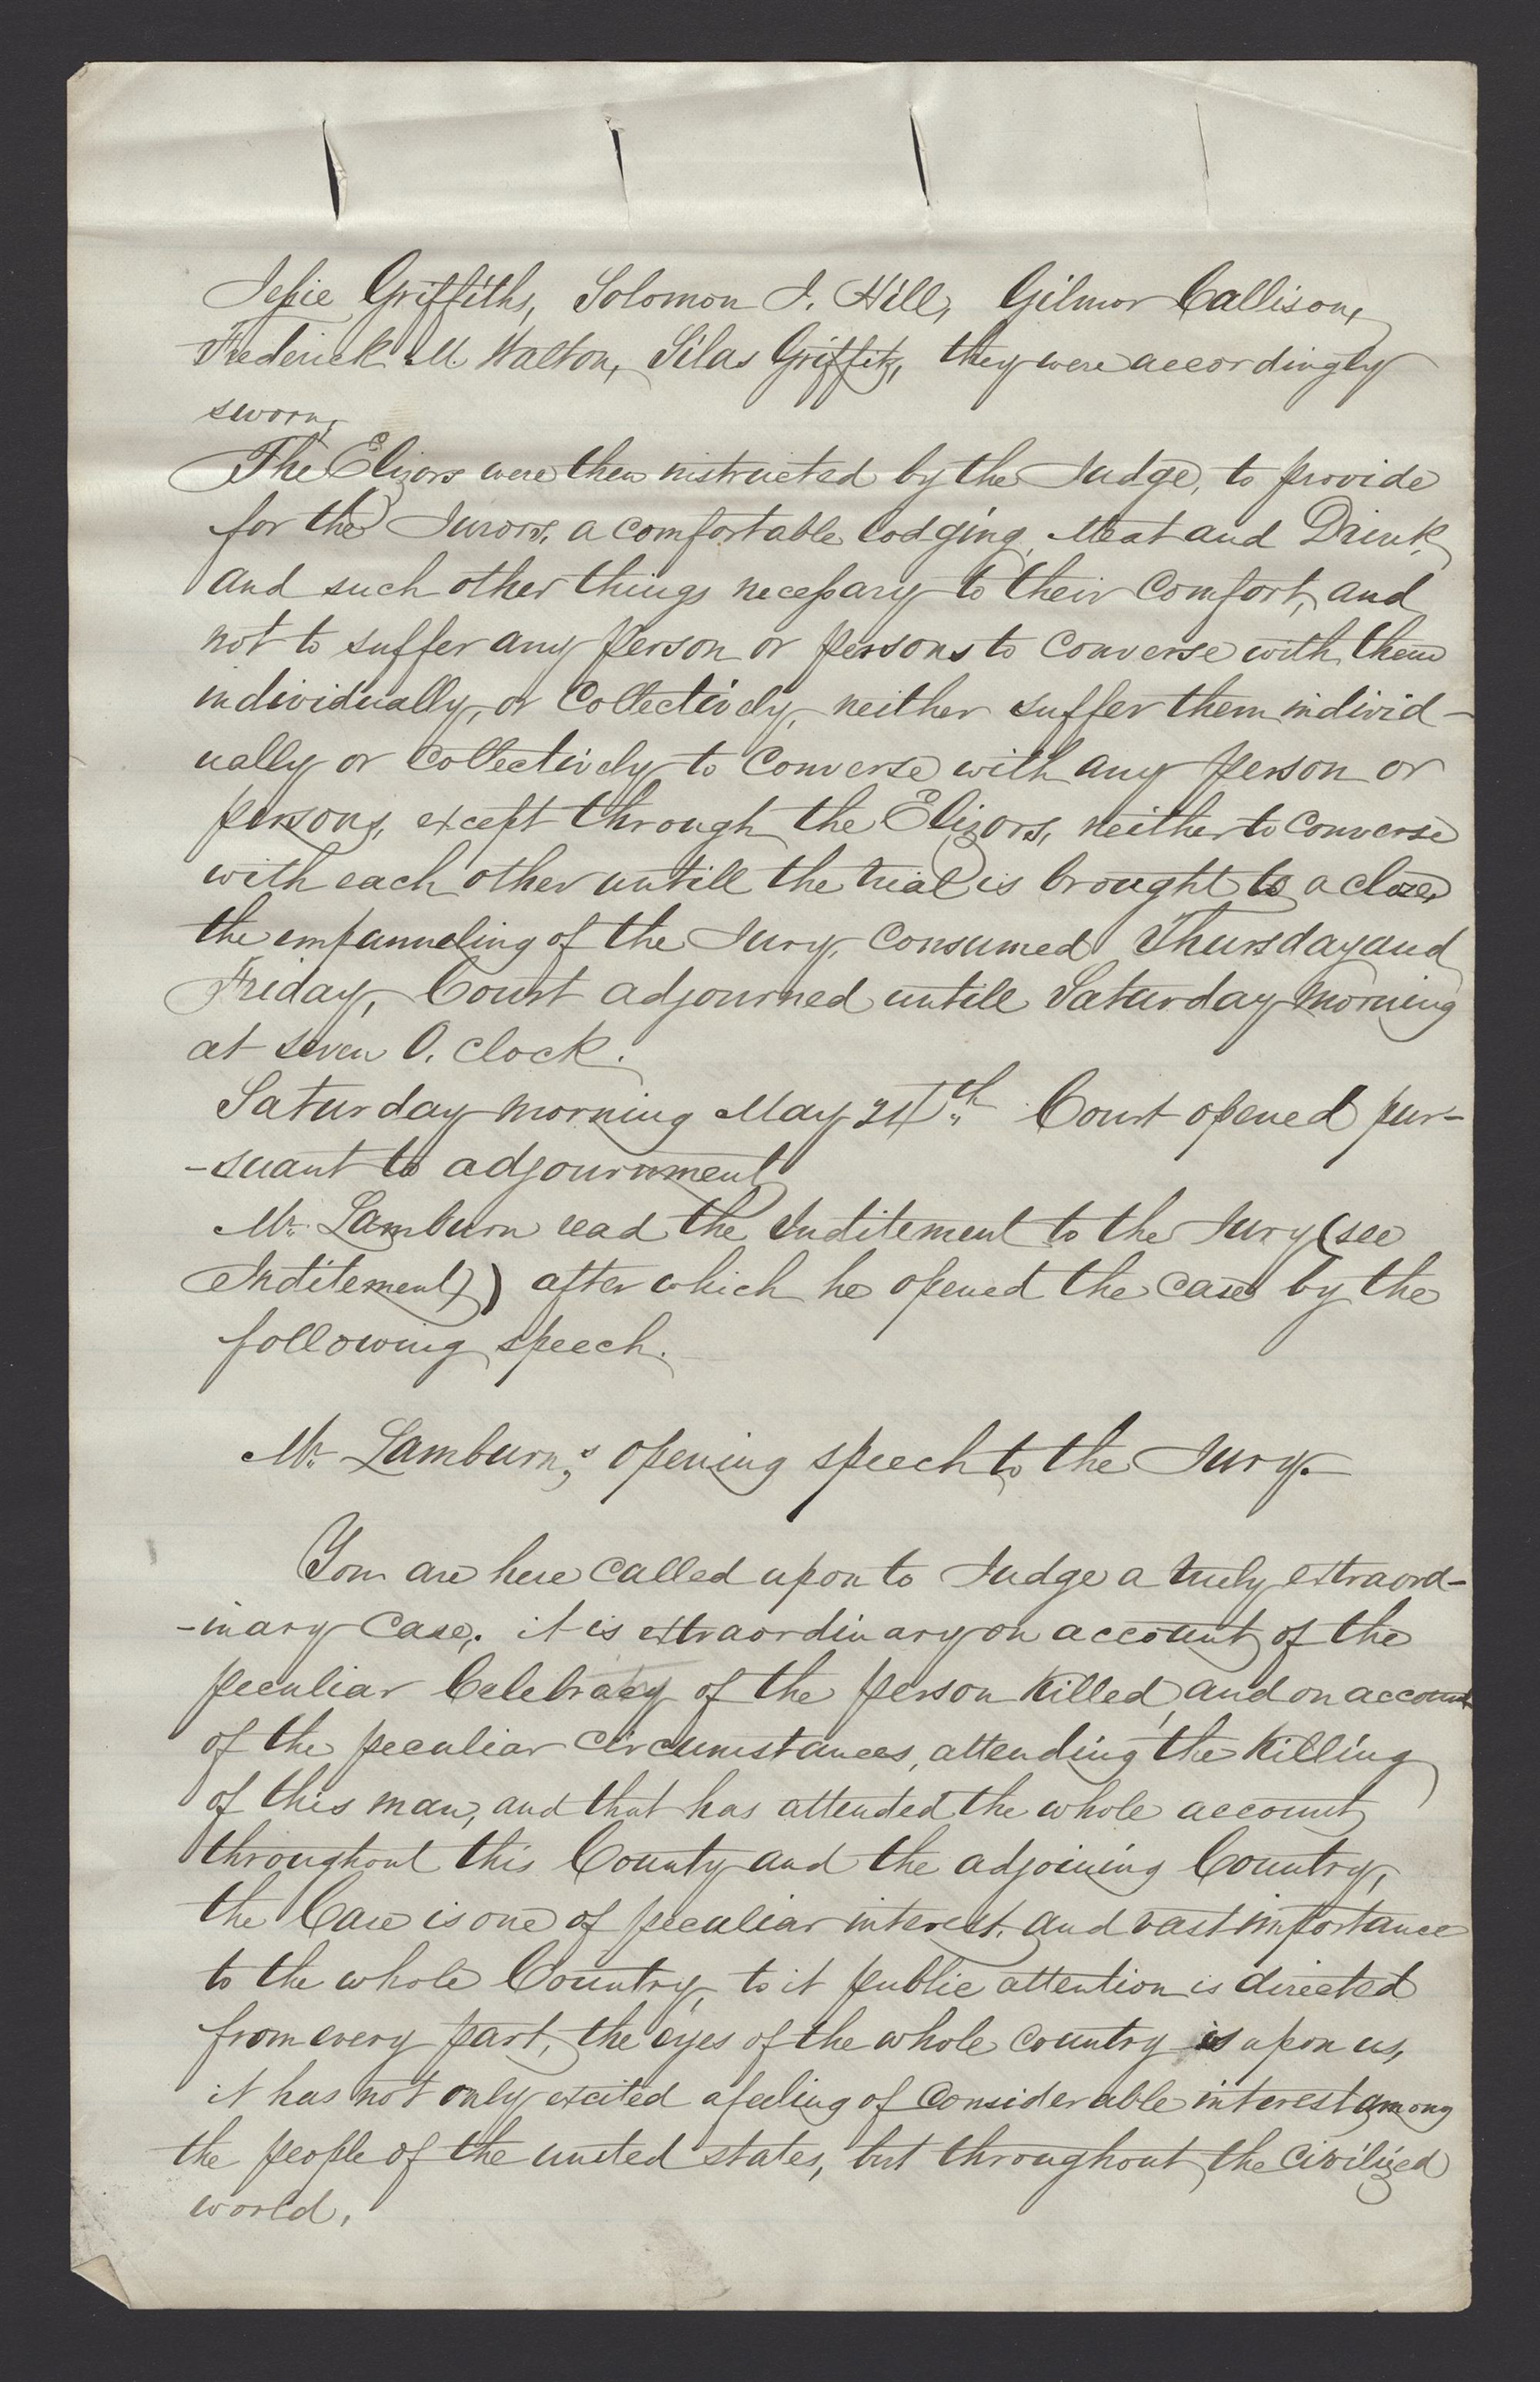 Jessie Griffiths, Solomon J. Hill, Gilmor Callison,
Frederick M. Walton, Silas Griffitz, they were accordingly
sworn,
The Elizors were then instructed by the Judge, to provide
for the Jurors, a comfortable lodging, Meat and Drink,
and such other things necessary to their comfort, and
not to suffer any person or persons to converse with them
individually, or Collectively, neither suffer them individ-
ually or collectively to converse with any person or
persons, except through the Elizors, neither to converse
with each other untill the trial is brought to a close,
the empanneling of the Jury, consumed Thursday and
Friday, Court adjourned untill Saturday morning
at seven O, clock.
Saturday morning May 24th Court opened pur-
-suant to adjournment
Mr. Lamburn read the Inditement to the Jury (see
Inditement) after which he opened the case by the
following speech.
Mr. Lamburn,s opening speech to the Jury.
You are here called upon to Judge a truly extraord-
-inary case,. it is extraordinary on account of the
peculiar Celebracy of the person killed, and on account
of the peculiar circumstances, attending the killing
of this man, and that has attended the whole account
throughout this County and the adjoining Country,
the Case is one of peculiar interest, and vast importance
to the whole Country, to it public attention is directed
from every part, the eyes of the whole country is upon us,
it has not only excited a feeling of considerable interest, among
the people of the united states, but throughout the civilized
world,